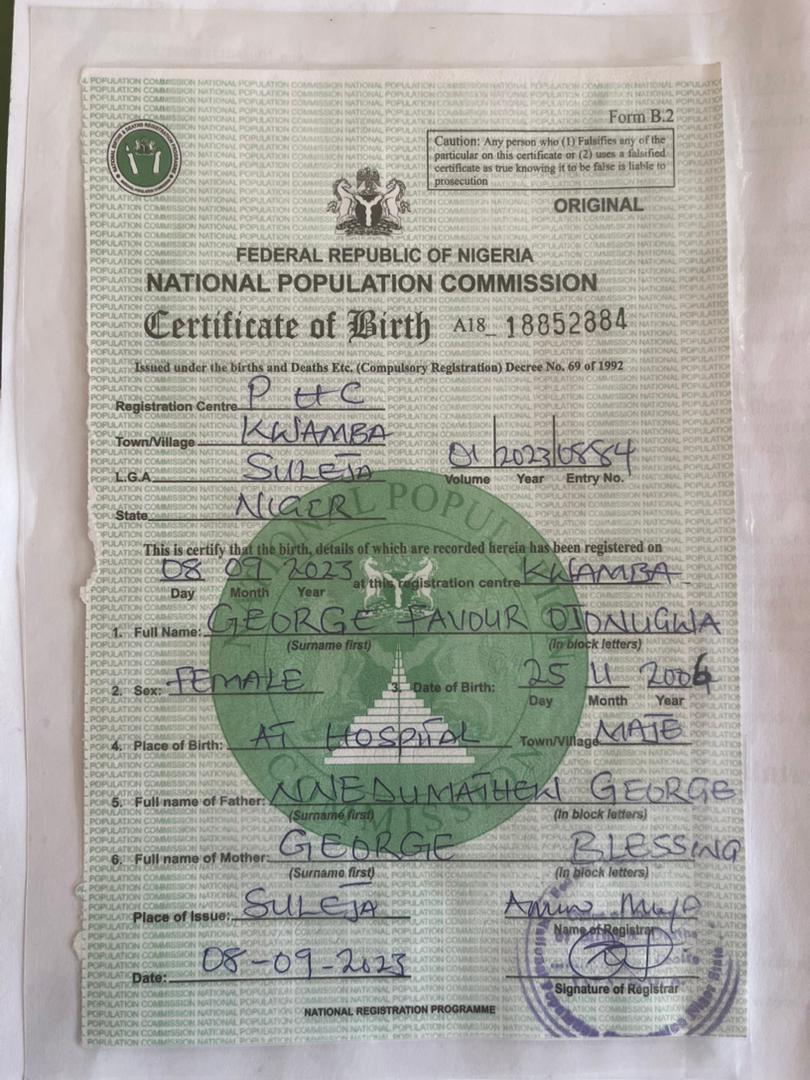 Form B.2
Caution: Any person who (1) Falsifies any of the
particular on this certificate or (2) uses a falsified
certificate as true knowing it to be false is liable to
prosecution
ORIGINAL
FEDERAL REPUBLIC OF NIGERIA
NATIONAL POPULATION COMMISSION
Certificate of Birth A18_ 18852884
Issued under the births and Deaths Etc. (Compulsory Registration) Decree No. 69 of 1992
Registration Centre P H C
Town/Village KWAMBA
L.G.A SULEJA
01 2023 0884
Volume Year Entry No.
State NIGER
This is certify that the birth, details of which are recorded herein has been registered on
08 09 2023 at this registration centre KWAMBA
Day Month Year
1. Full Name: GEORGE FAVOUR OJONUGWA
(Surname first) (In block letters)
2. Sex: FEMALE 3. Date of Birth: 25 11 2006
Day Month Year
4. Place of Birth: AT HOSPITAL Town/Village MAJE
5. Full name of Father: NNEDUMATHEW GEORGE
(Surname first) (In block letters)
6. Full name of Mother: GEORGE BLESSING
(Surname first) (In block letters)
Place of Issue: SULEJA
Name of Registrar
Date: 08-09-2023
Signature of Registrar
NATIONAL REGISTRATION PROGRAMME